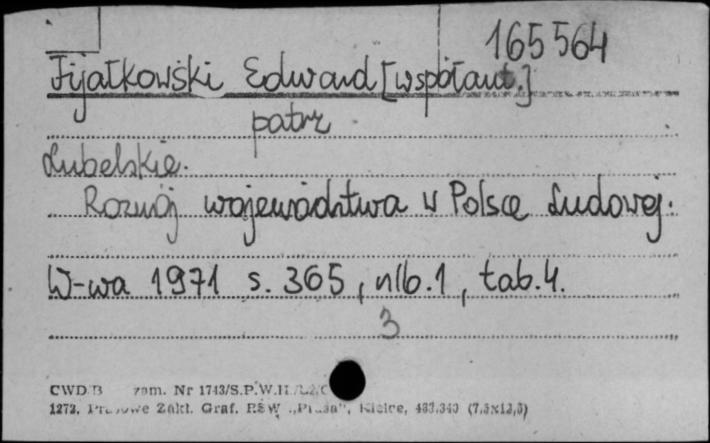 165564
Fijałkowski Edward [współaut.]
patrz
Lubelskie.
Rozwój województwa w Polsce Ludowej.
W-wa 1971 s. 365, nlb. 1, tab. 4.
3
CWD/B zam. Nr 1743/S.P.W.H.
1272. Prasowe Zakł. Graf. RSW „Prasa", Kielce, 483.340 (7,5x12,5)